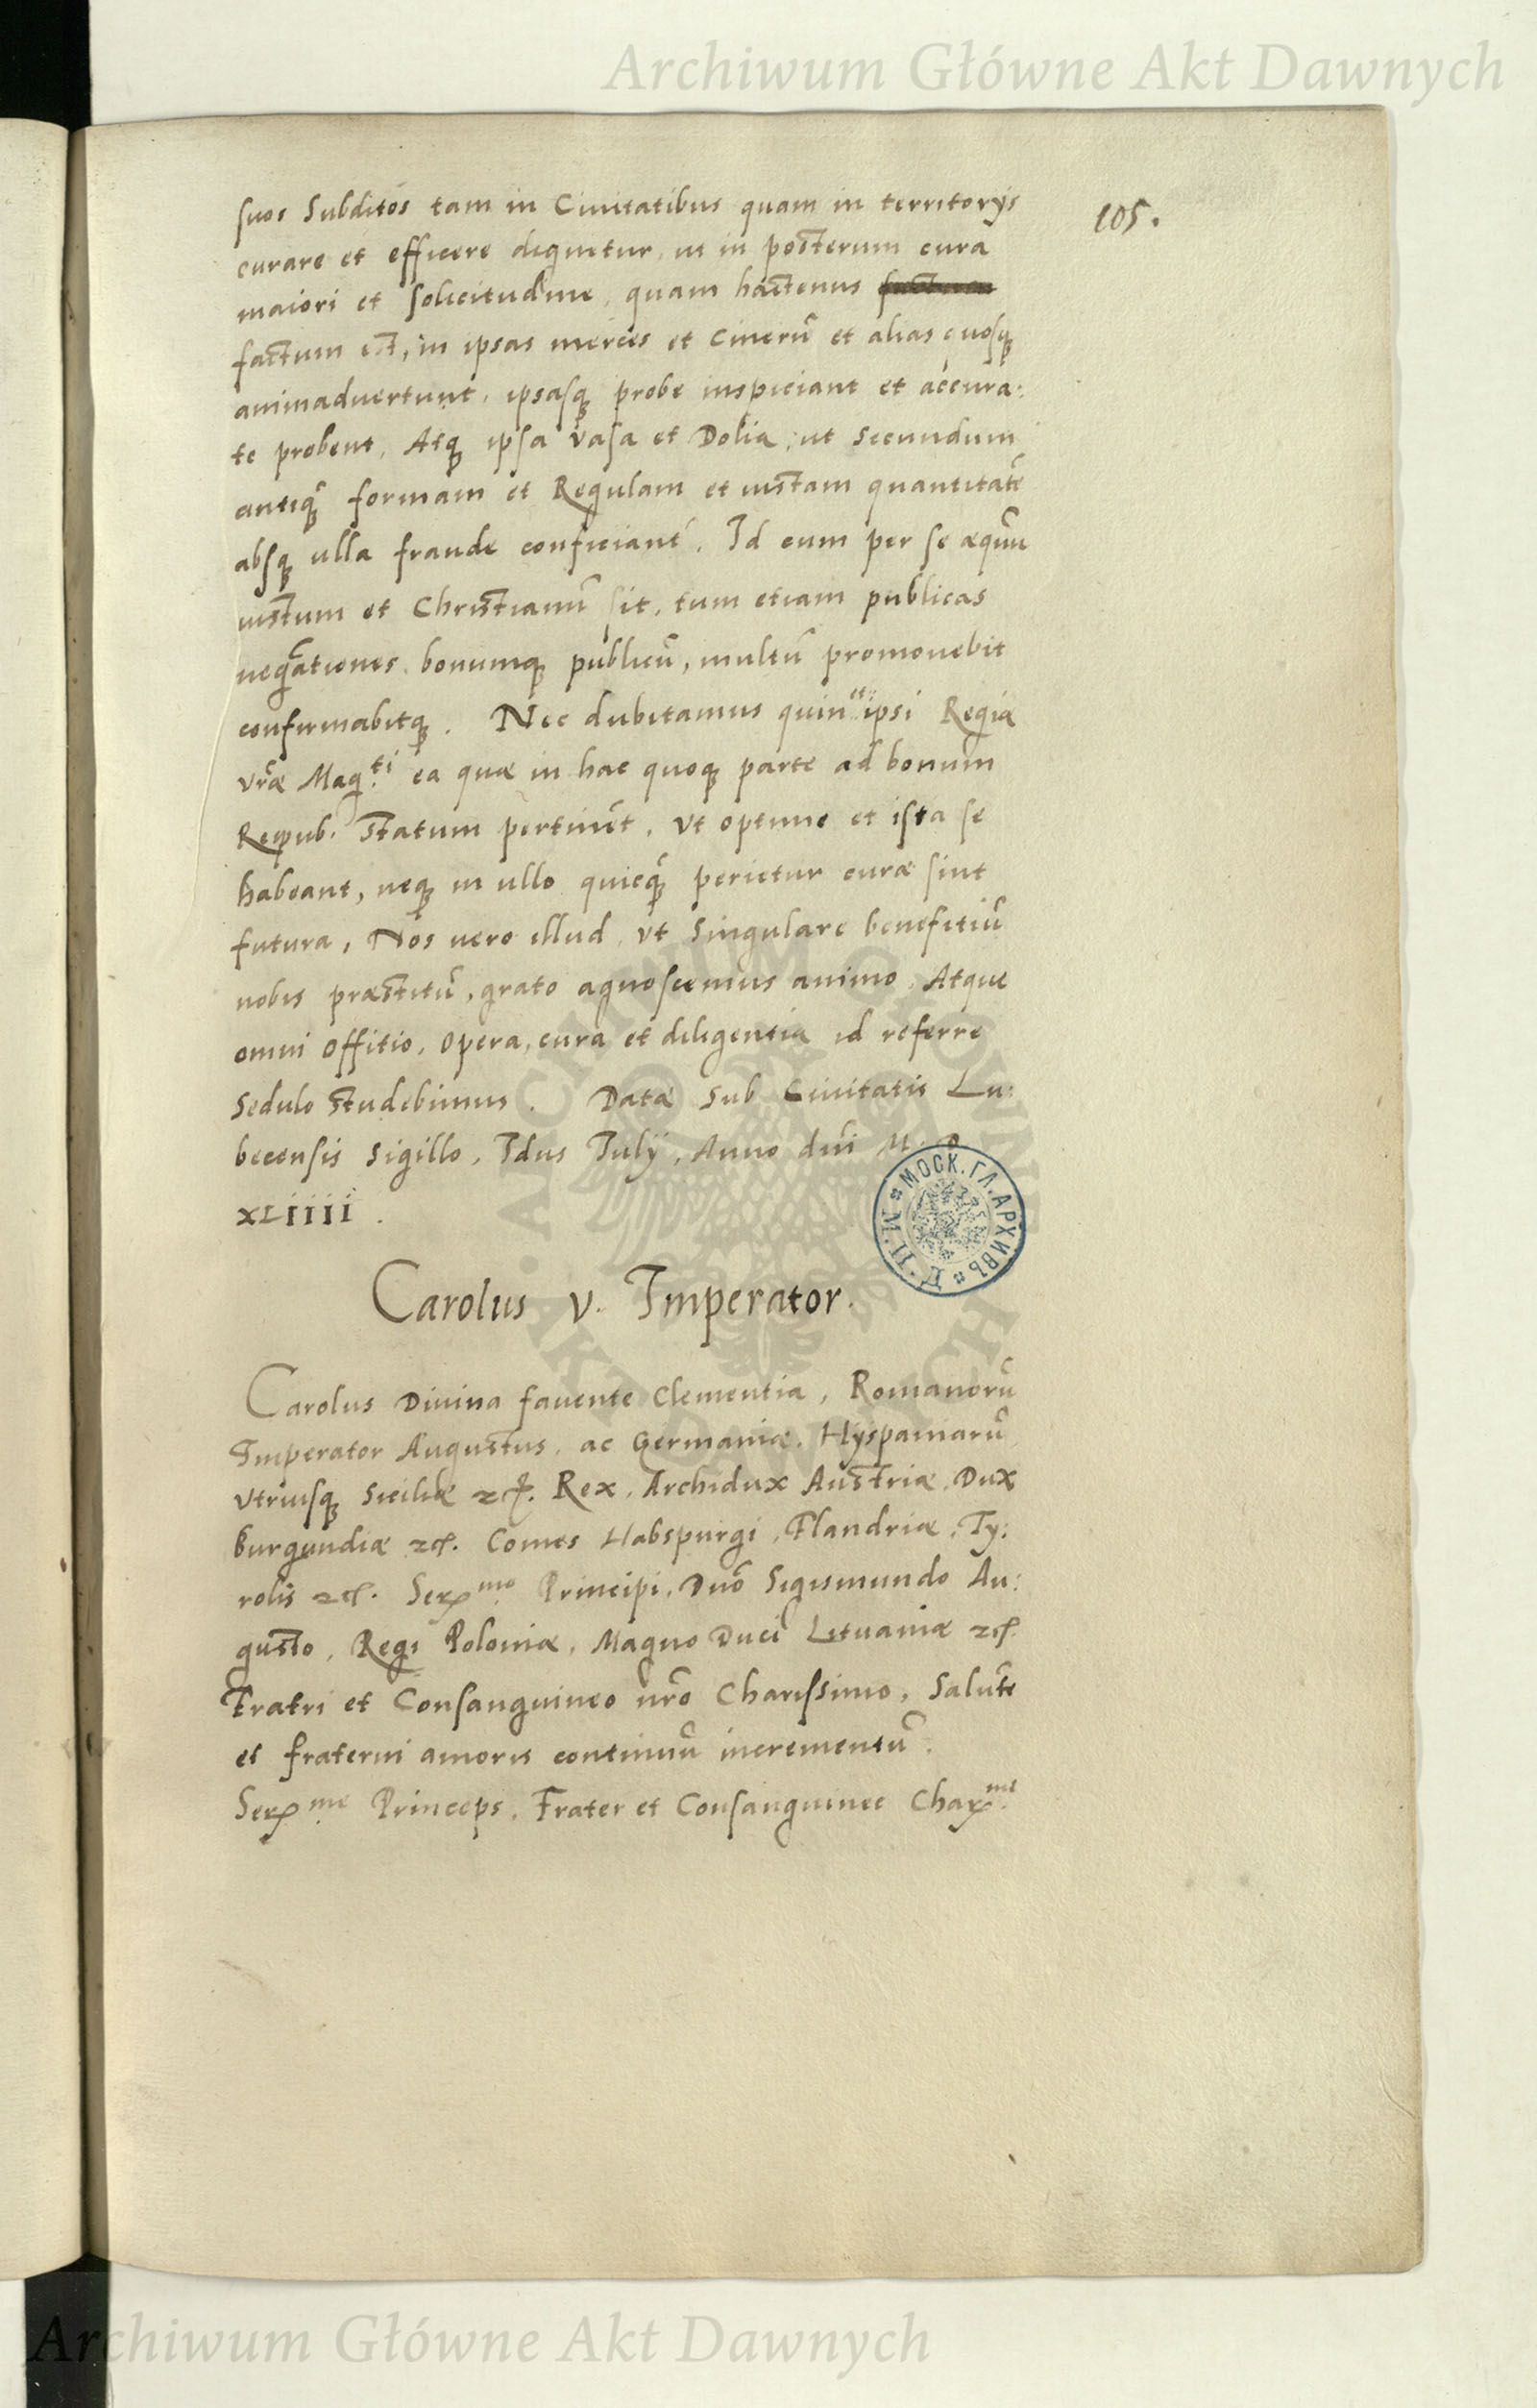 Archiwum Główne Akt Dawnych
105.
suos Subditos tam in Ciuitatibus quam in territorijs
curare et efficere dignetur, ut in posterum cura
maiori et solicitudine, quam hactenus factum
factum est, in ipsas merces et Cinerū et alias quosq̨
animaduertunt, ipsasq̨ probe inspiciant et accura:
te probent, Atq̨ ipsa vasa et Dolia, ut secundum
antiq̨̄ formam et Regulam et iustam quantitatē
absq̨ ulla fraude conficiant. Id cum per se æquū
iustum et Christianū sit, tum etiam publicas
negāationes bonumq̨ publicū, multū promouebit
confirmabitq̨. Nec dubitamus quin et ipsi Regia
vr̄æ Mag.ti ea quæ in hac quoq̨ parte ad bonum
Reipub. statum pertinēt, vt optime et ista se
habeant, neq̨ in ullo quicq̨̄ perietur curæ sint
futura, Nos uero illud, vt singulare benefitiū
nobis præstitū, grato agnoscemus animo, Atque
omni offitio, opera, cura et diligentia id referre
sedulo studebimus. Datæ sub Ciuitatis Lu:
becensis sigillo, Idus Iulij, Anno dn̄i M. D.
XLIIII.
МОСК. ГЛ. АРХИВЪ М. И. Д.
Carolus V. Imperator.
Carolus Diuina fauente Clementia, Romanorū
Imperator Augustus, ac Germaniæ, Hyspaniarū
Vtriusq̨ Siciliæ ꝛc. Rex, Archidux Austriæ, Dux
Burgundiæ ꝛc. Comes Habspurgi, Flandriæ, Ty:
rolis ꝛc. Ser.mo Principi, Dn̄o Sigismundo Au:
gusto, Regi Poloniæ, Magno Duci Lituaniæ ꝛc.
Fratri et Consanguineo nr̄o Charissimo, Salutē
et fraterni amoris continuū incrementū.
Ser.me Princeps, Frater et Consanguinee Char.me
Archiwum Główne Akt Dawnych